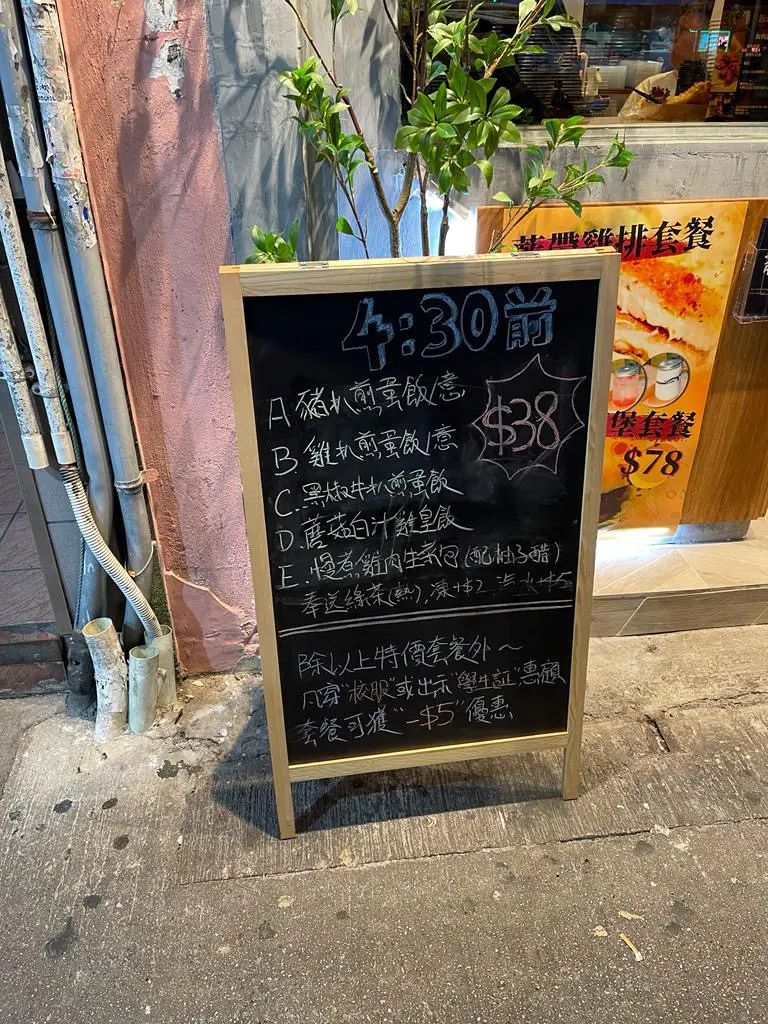 4:30前
A 豬扒煎蛋飯/意
B 雞扒煎蛋飯/意
$38
C.黑椒牛扒煎蛋飯
D.蘑菇白汁雞皇飯
E.慢煮雞肉生菜包(配柚子醋)
奉送綠茶(熱),凍+$2 汽水+$5
除以上特價套餐外~
凡穿"校服"或出示"學生証"惠顧
套餐可獲"-$5"優惠
雞排套餐
堡套餐
$78